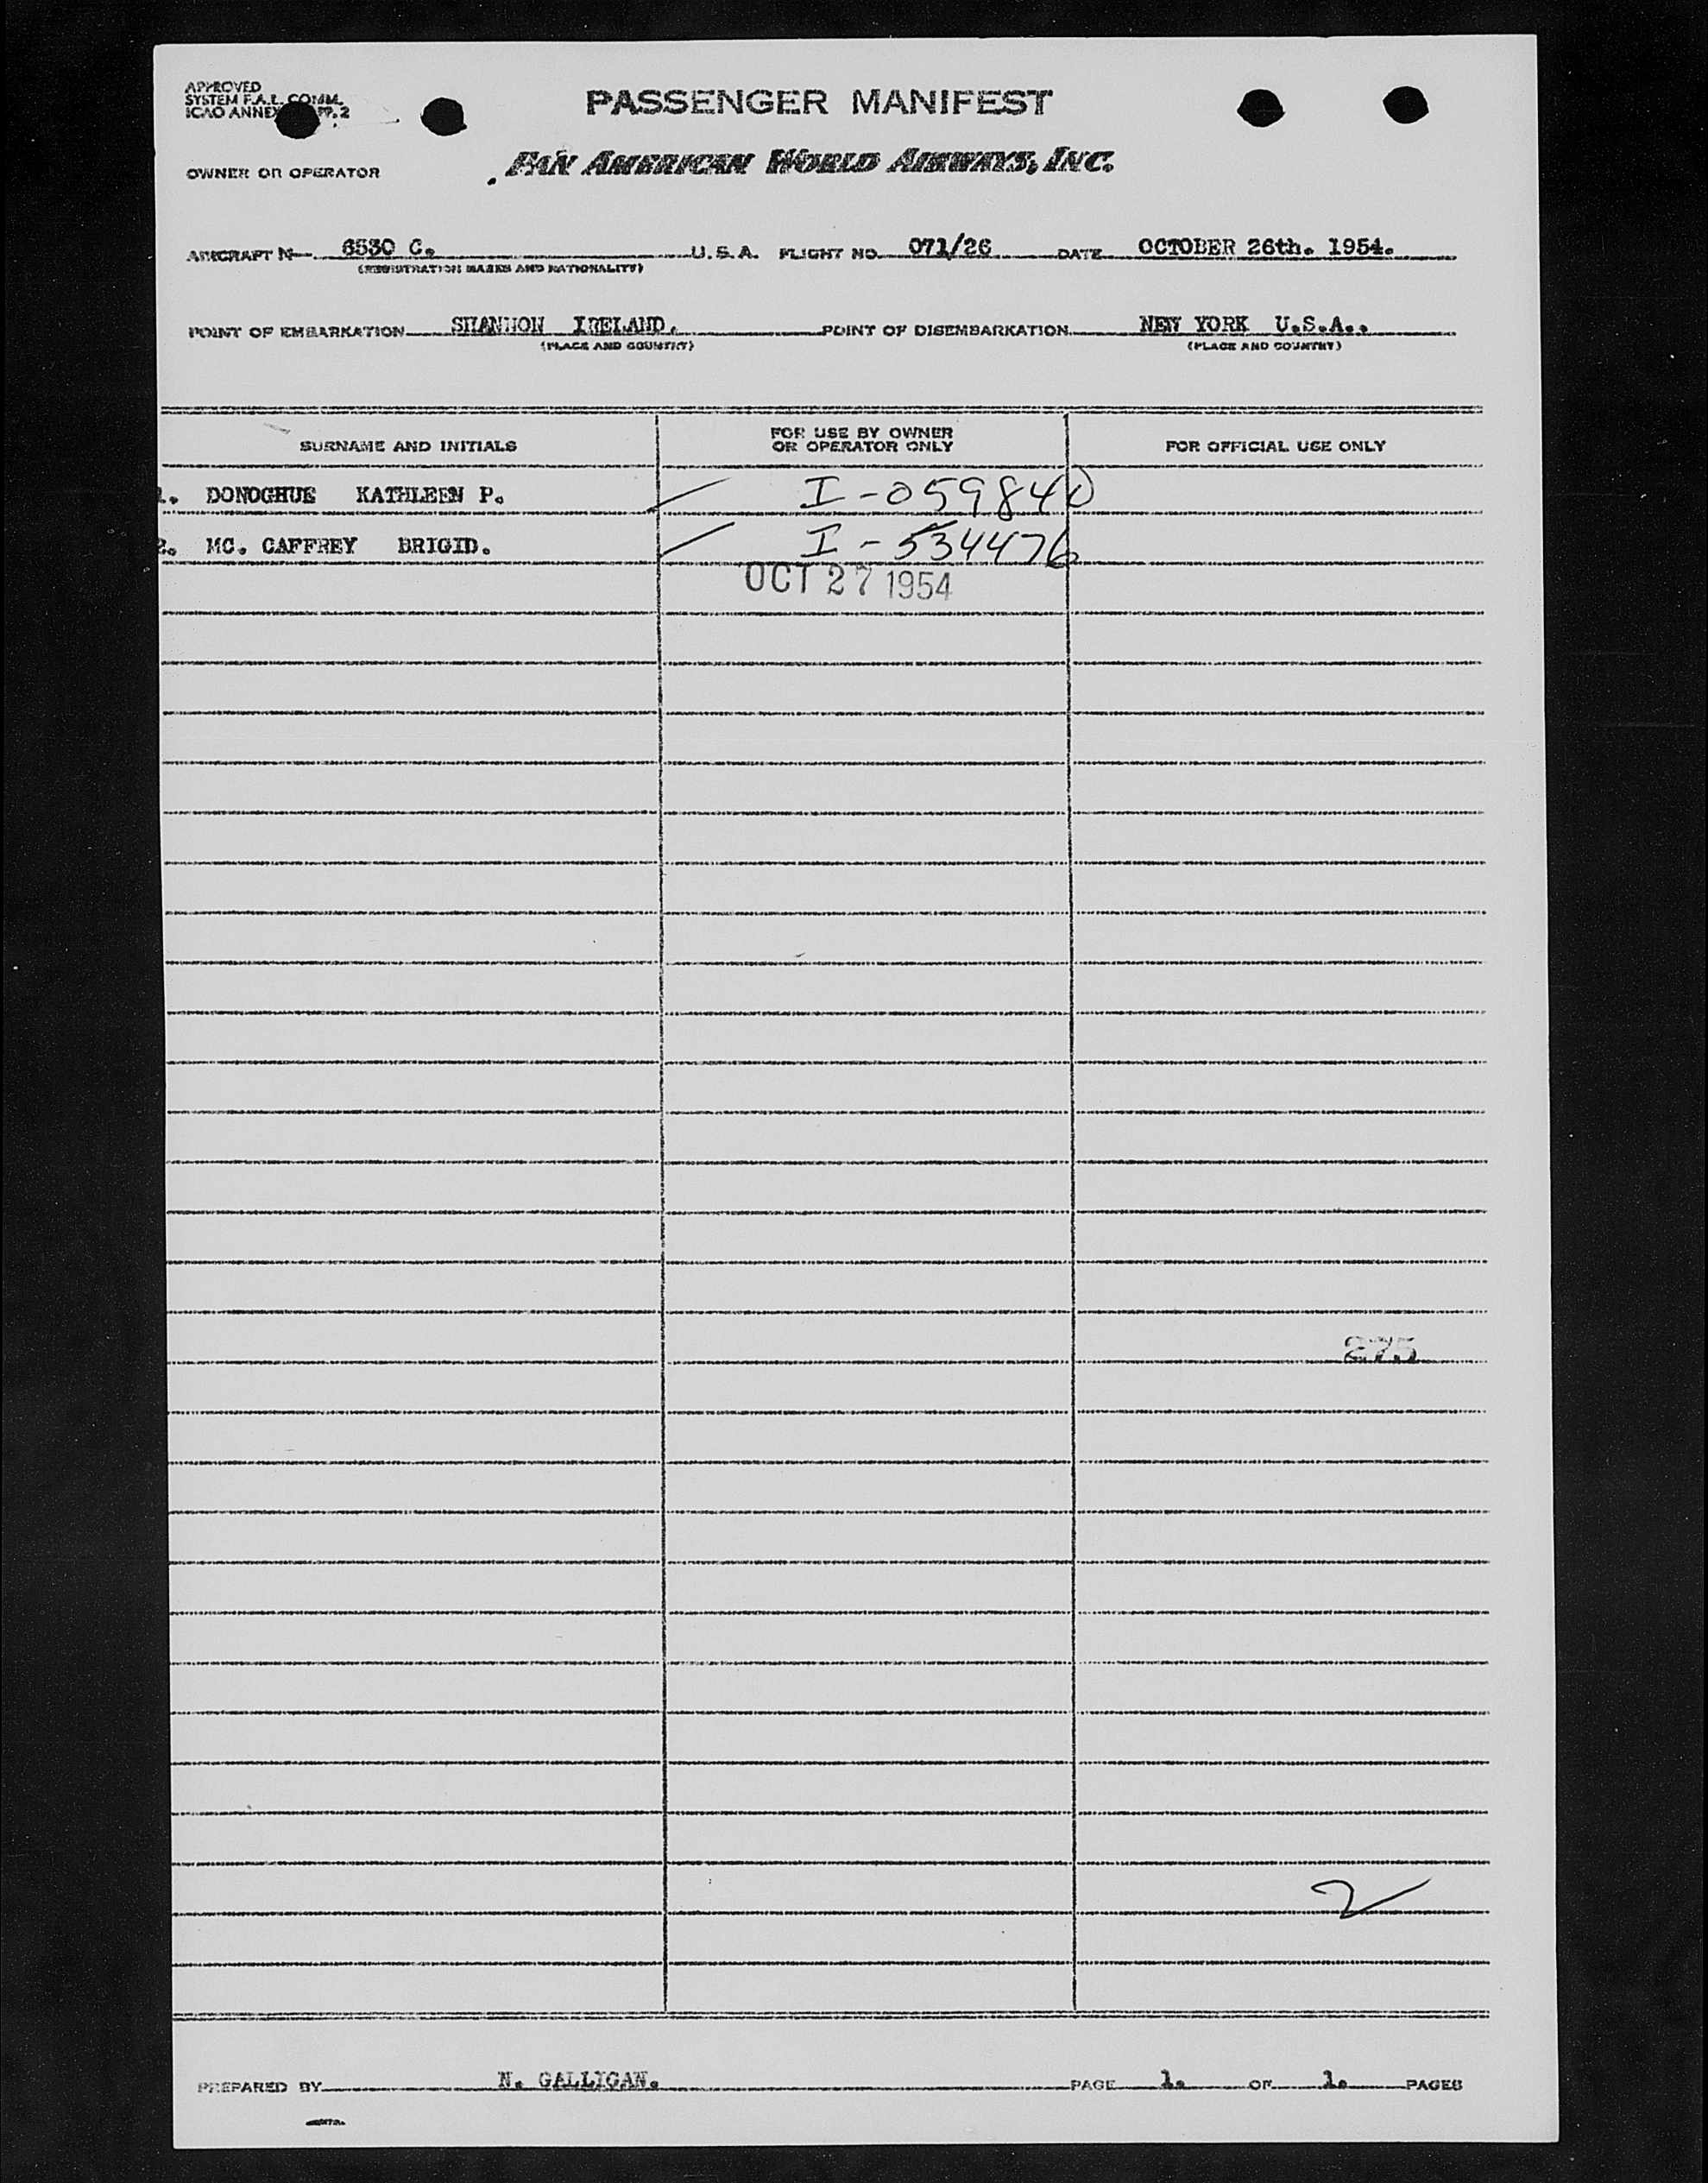 APPROVED
SYSTEM F.A.L. COMM.
ICAO ANNEX PP. 2
PASSENGER MANIFEST
OWNER OR OPERATOR PAN AMERICAN WORLD AIRWAYS, INC.
AIRCRAFT N 6530 C. U.S.A. FLIGHT NO. 071/26 DATE OCTOBER 26th. 1954.
(REGISTRATION MARKS AND NATIONALITY)
POINT OF EMBARKATION SHANNON IRELAND. POINT OF DISEMBARKATION NEW YORK U.S.A..
(PLACE AND COUNTRY) (PLACE AND COUNTRY)
SURNAME AND INITIALS
FOR USE BY OWNER
OR OPERATOR ONLY
FOR OFFICIAL USE ONLY
1. DONOGHUE KATHLEEN P. I-059840
2. MC. CAFFREY BRIGID. I-534476
OCT 27 1954
275
2
PREPARED BY N. GALLIGAN. PAGE 1. OF 1. PAGES